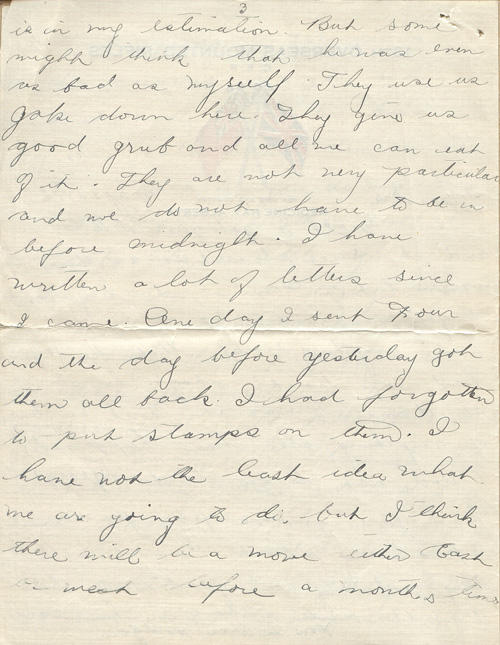 3
is in my estimation. But some
might think that he was even
as bad as myself. They use us
Jake down here. They give us
good grub and all we can eat
of it. They are not very particular
and we do not have to be in
before midnight. I have
written a lot of letters since
I came. One day I sent Four
and the day before yesterday got
them all back. I had forgotten
to put stamps on them. I
have not the least idea what
we are going to do, but I think
there will be a move either East
or west before a months time